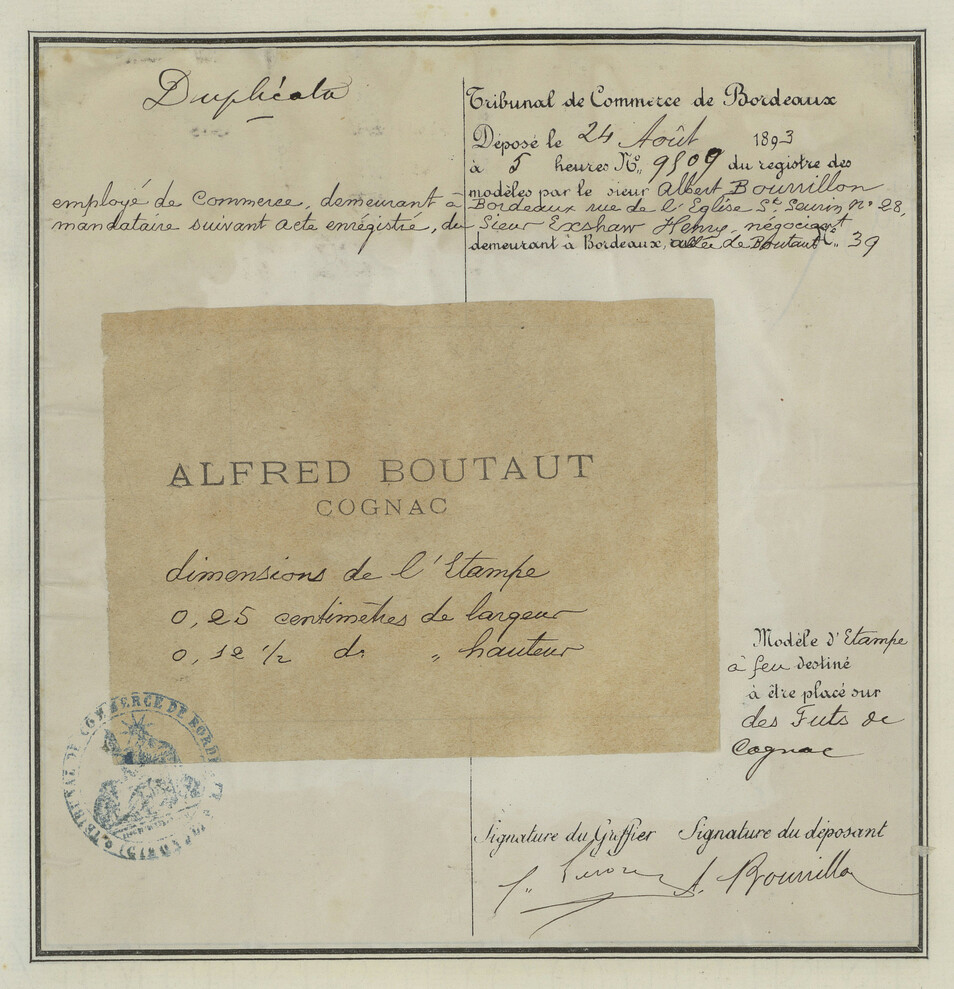 Duplicata
Tribunal de Commerce de Bordeaux
Déposé le 24 Août 1893
à 5 heures N°. 9509 du registre des
modèles par le sieur Albert Bourrillon
employé de Commerce, demeurant à Bordeaux rue de l'Eglise St. Seurin n° 28,
mandataire suivant acte enrégistré, du Sieur Exshaw Henry, négociant
demeurant à Bordeaux, allée de Boutaut N°. 39
ALFRED BOUTAUT
COGNAC
dimensions de l'Etampe
0,25 centimètres de largeur
0,12 1/2 do „ hauteur
Modèle d'Etampe
à feu destiné
à être placé sur
des Futs de
Cognac
TRIBUNAL DE COMMERCE DE BORDEAUX
Signature du Greffier Signature du déposant
A. Bourrillon